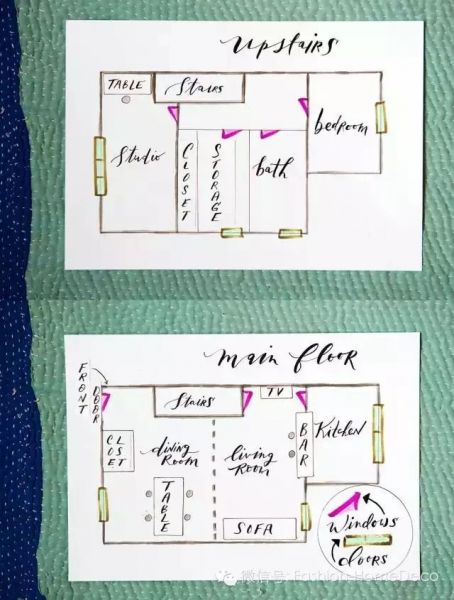 upstairs
TABLE
Stairs
Studio
CLOSET
STORAGE
bath
bedroom
main floor
FRONT DOOR
Stairs
TV
CLOSET
dining
ROOM
living
ROOM
BAR
Kitchen
TABLE
SOFA
Windows
doors
微信号: Fashion-HomeDeco